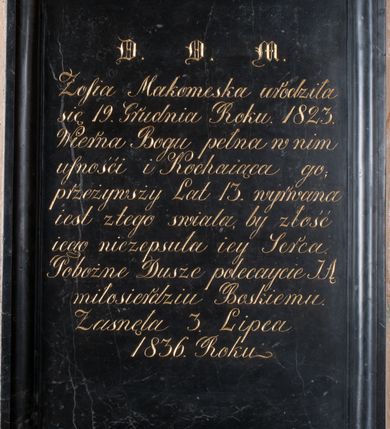 D. D. M.
Zofia Makomeska urodziła
się 19. Grudnia Roku. 1823.
Wierna Bogu pełna w nim
ufnośći i Kochaiąca go;
przeżywszy Lat 13. wyrwana
iest złego swiata, by złość
iego niezepsuła iey Serca.
Pobożne Dusze polecaycie JĄ
miłosierdziu Boskiemu.
Zasnęła 3. Lipca
1836. Roku